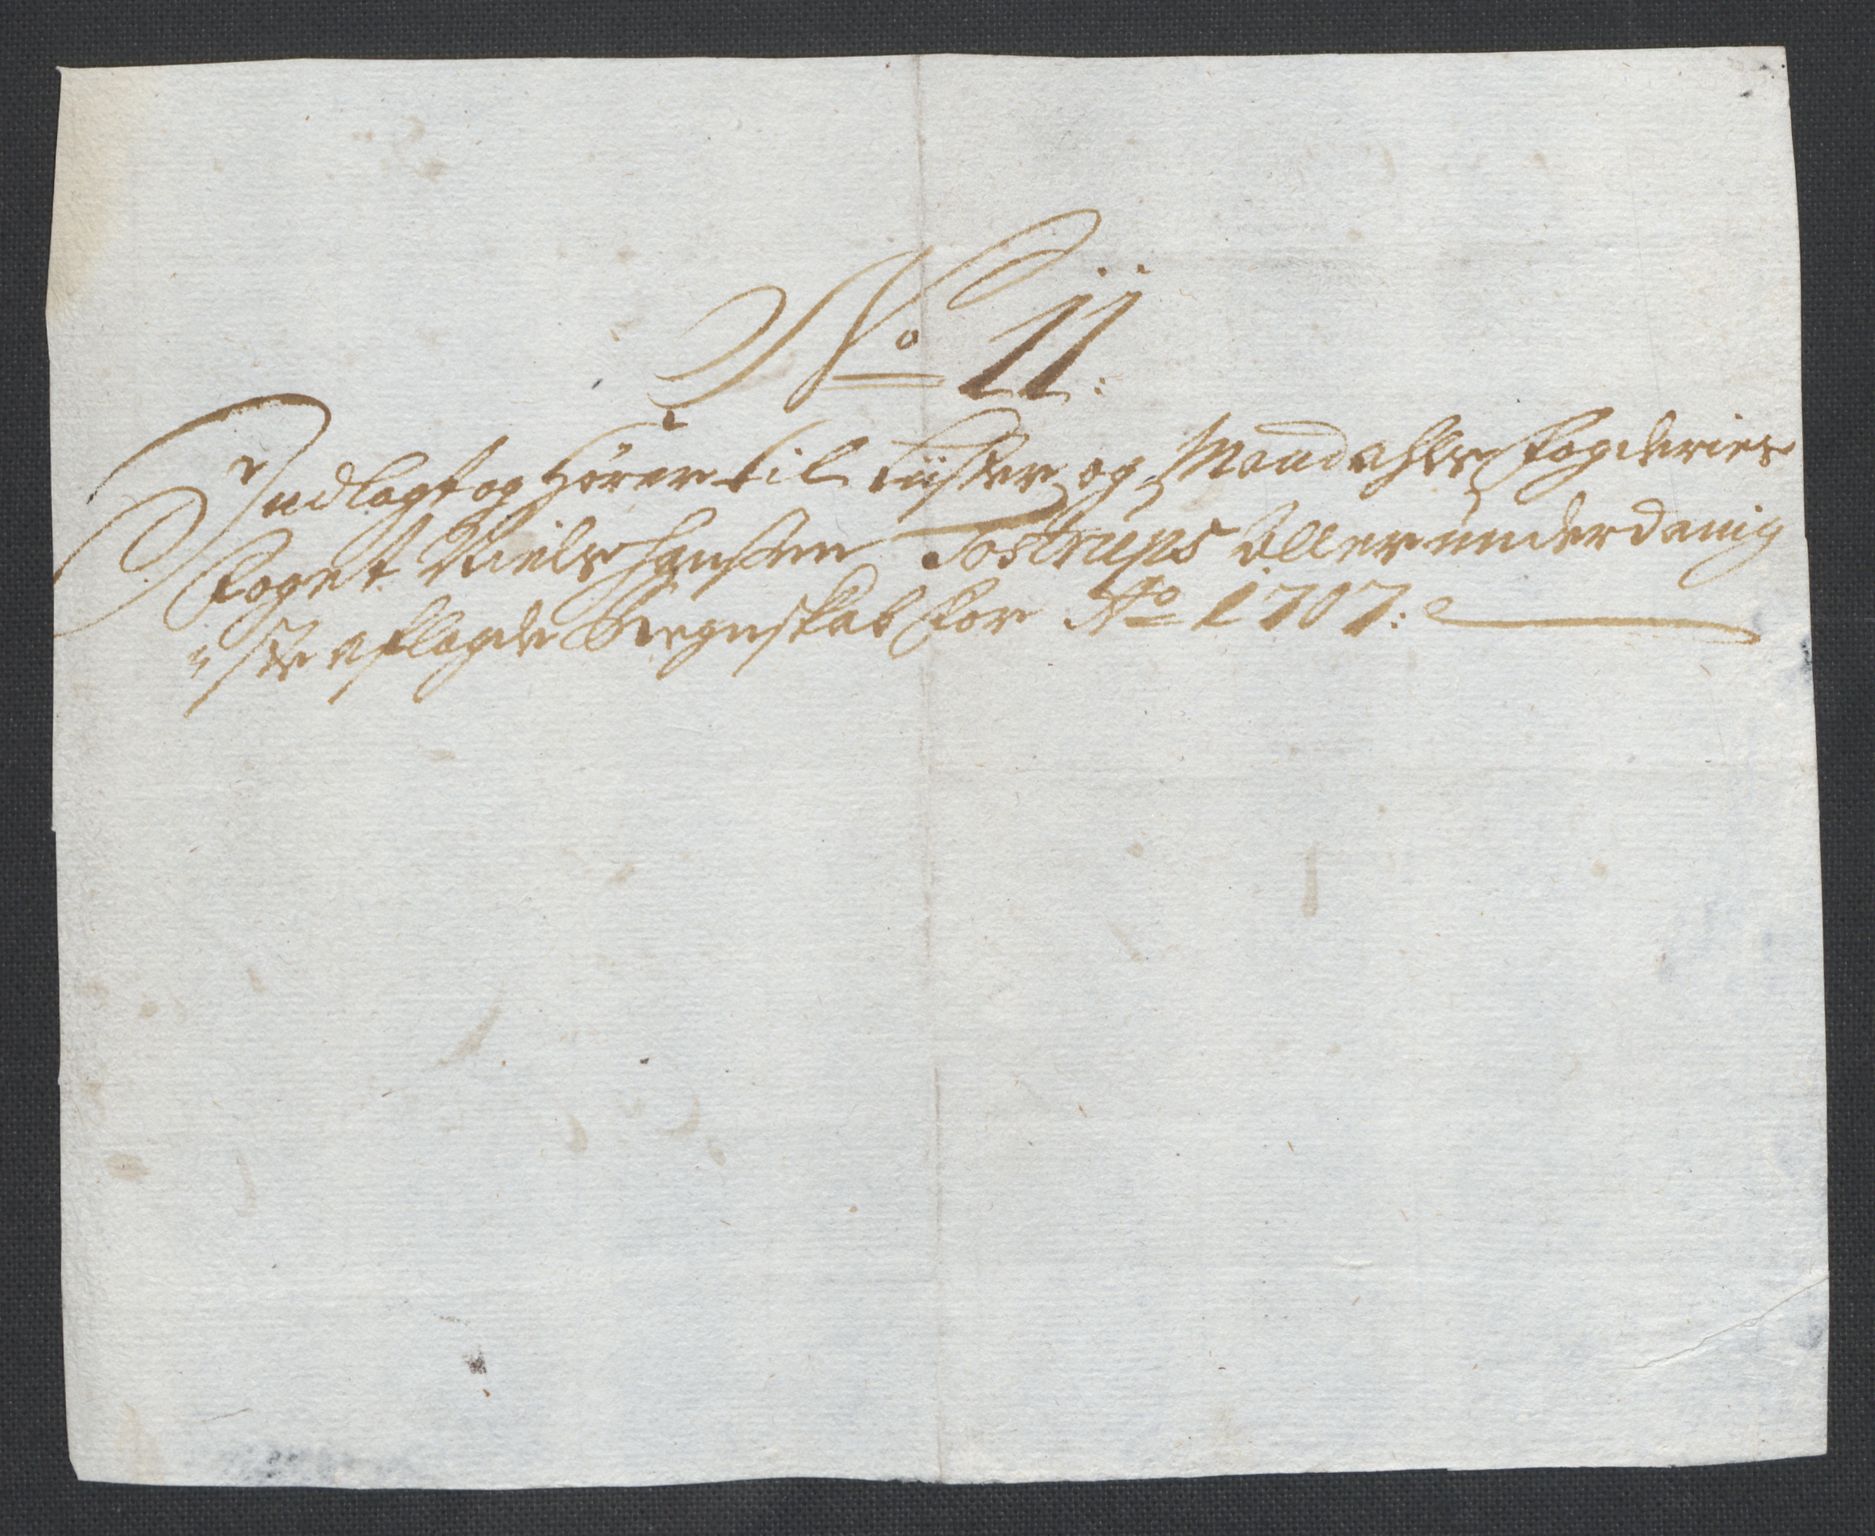 No 11:
Indlagt og hører til Lister og Mandahls fogderies
foget Niels Hansen Tostrups Allerunderdanig
iste aflagde Regnskab for Ao 1707: